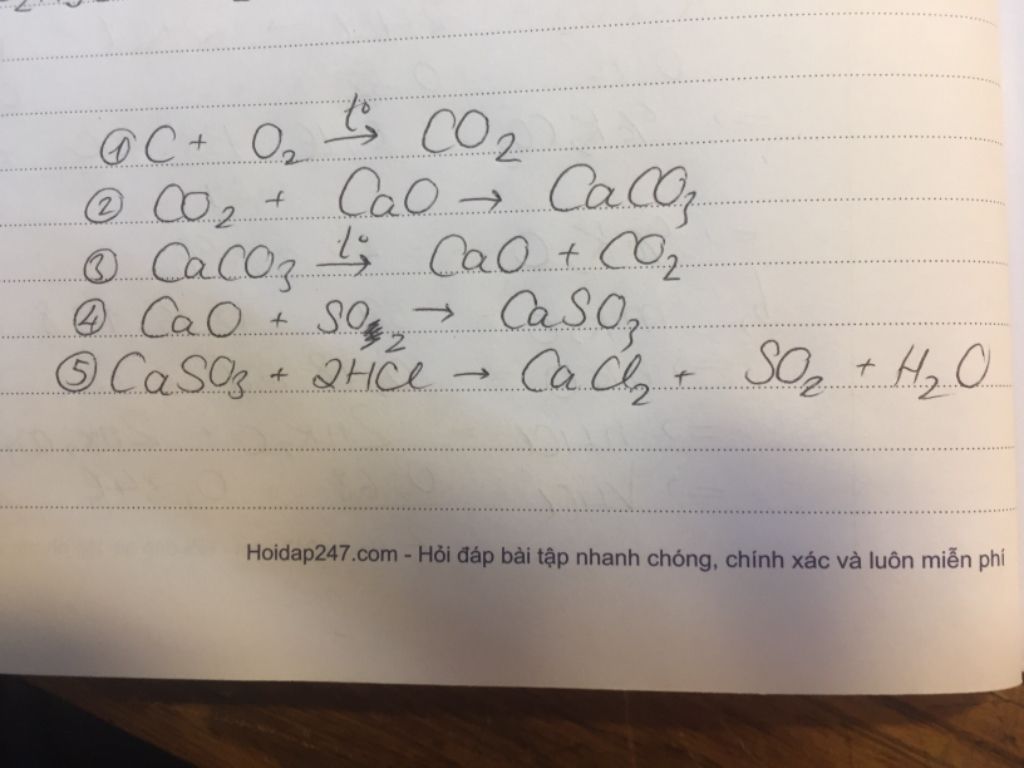 ① C + O₂ →t° CO₂
② CO₂ + CaO → CaCO₃
③ CaCO₃ →t° CaO + CO₂
④ CaO + SO₂ → CaSO₃
⑤ CaSO₃ + 2HCl → CaCl₂ + SO₂ + H₂O
Hoidap247.com - Hỏi đáp bài tập nhanh chóng, chính xác và luôn miễn phí